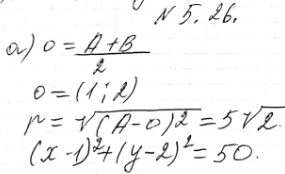 N 5. 26.
а) 0 = \frac{A+B}{2}
0 = (1; 2)
r = \sqrt{(A-0)^2} = 5\sqrt{2}.
(x-1)^2+(y-2)^2 = 50.